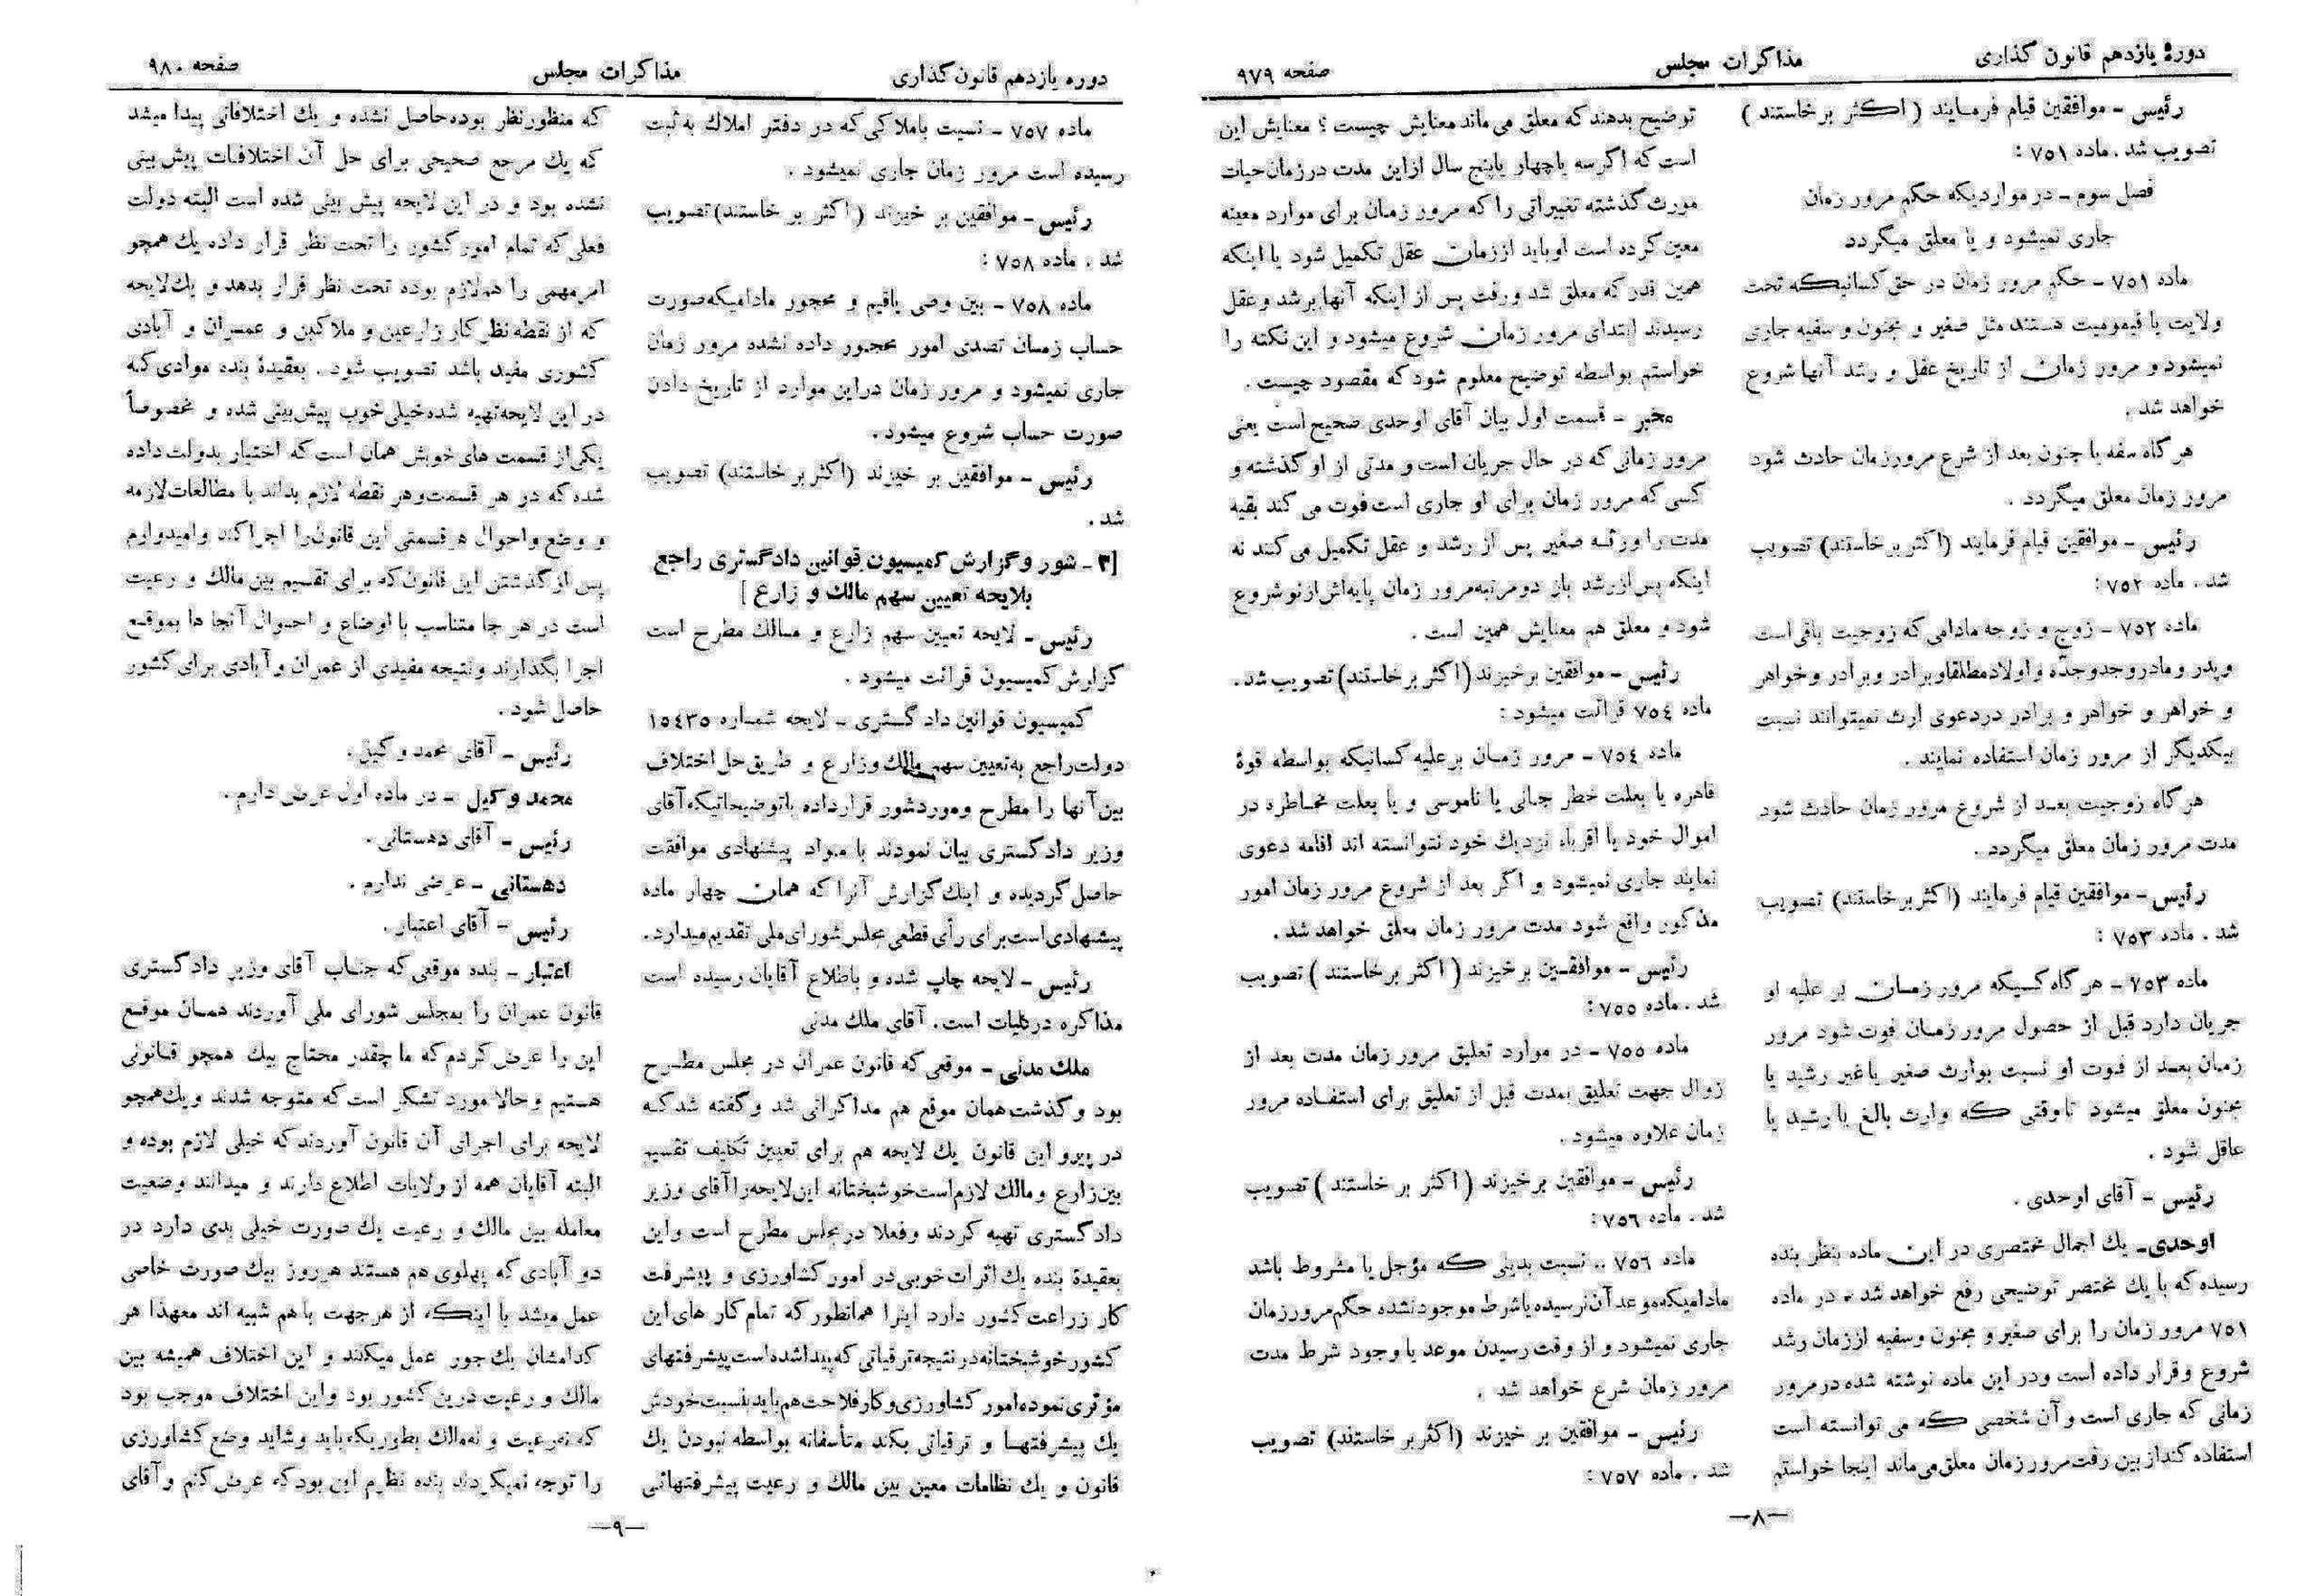 دورهٔ یازدهم قانون گذاری
مذاکرات مجلس
صفحه ۹۷۹
رئیس – موافقین قیام فرمایند ( اکثر برخاستند )
تصویب شد . ماده ۷۵۱ :
فصل سوم – در مواردیکه حکم مرور زمان
جاری نمیشود و یا معلق میگردد
ماده ۷۵۱ – حکم مرور زمان در حق کسانیکه تحت
ولایت یا قیمومیت هستند مثل صغیر و مجنون و سفیه جاری
نمیشود و مرور زمان از تاریخ عقل و رشد آنها شروع
خواهد شد .
هر گاه سفه یا جنون بعد از شرع مرورزمان حادث شود
مرور زمان معلق میگردد .
رئیس – موافقین قیام فرمایند (اکثر برخاستند) تصویب
شد . ماده ۷۵۲ :
ماده ۷۵۲ – زوج و زوجه مادامی که زوجیت باقی است
و پدر و مادر و جد و جدّه و اولاد مطلقا و برادر و برادر و خواهر
و خواهر و خواهر و برادر در دعوی ارث نمیتوانند نسبت
بیکدیگر از مرور زمان استفاده نمایند .
هر گاه زوجیت بعد از شروع مرور زمان حادث شود
مدت مرور زمان معلق میگردد .
رئیس – موافقین قیام فرمایند (اکثر برخاستند) تصویب
شد . ماده ۷۵۳ :
ماده ۷۵۳ – هر گاه کسیکه مرور زمان بر علیه او
جریان دارد قبل از حصول مرور زمان فوت شود مرور
زمان بعد از فوت او نسبت بوارث صغیر یا غیر رشید یا
مجنون معلق میشود تا وقتی که وارث بالغ یا رشید یا
عاقل شود .
رئیس – آقای اوحدی .
اوحدی– یك اجمال مختصری در این ماده بنظر بنده
رسیده که با یك مختصر توضیحی رفع خواهد شد . در ماده
۷۵۱ مرور زمان را برای صغیر و مجنون وسفیه اززمان رشد
شروع و قرار داده است ودر این ماده نوشته شده در مرور
زمانی که جاری است و آن شخصی که می توانسته است
استفاده کند از بین رفت مرور زمان معلق می ماند اینجا خواستم
توضیح بدهند که معلق می ماند معنایش چیست ؟ معنایش این
است که اگر سه یا چهار یا پنج سال از این مدت در زمان حیات
مورث گذشته تغییراتی را که مرور زمان برای موارد معینه
معین کرده است او باید از زمان عقل تکمیل شود یا اینکه
همین قدر که معلق شد و رفت پس از اینکه آنها برشد و عقل
رسیدند ابتدای مرور زمان شروع میشود و این نکته را
خواستم بواسطه توضیح معلوم شود که مقصود چیست .
مخبر – قسمت اول بیان آقای اوحدی صحیح است یعنی
مرور زمانی که در حال جریان است و مدتی از او گذشته و
کسی که مرور زمان برای او جاری است فوت می کند بقیه
مدت را ورثه صغیر پس از رشد و عقل تکمیل می کنند نه
اینکه پس از رشد باز دو مرتبه مرور زمان پایه اش از نو شروع
شود و معلق هم معنایش همین است .
رئیس – موافقین برخیزند (اکثر برخاستند) تصویب شد.
ماده ۷۵٤ قرائت میشود :
ماده ۷۵٤ – مرور زمان بر علیه کسانیکه بواسطه قوهٔ
قاهره یا بعلت خطر جانی یا ناموسی و یا بعلت مخاطره در
اموال خود یا اقرباء نزدیك خود نتوانسته اند اقامه دعوی
نمایند جاری نمیشود و اگر بعد از شروع مرور زمان امور
مذکور واقع شود مدت مرور زمان معلق خواهد شد .
رئیس – موافقین برخیزند ( اکثر برخاستند ) تصویب
شد . ماده ۷۵۵ :
ماده ۷۵۵ – در موارد تعلیق مرور زمان مدت بعد از
زوال جهت تعلیق بمدت قبل از تعلیق برای استفاده مرور
زمان علاوه میشود .
رئیس – موافقین برخیزند ( اکثر بر خاستند ) تصویب
شد . ماده ۷۵٦ :
ماده ۷۵٦ .. نسبت بدینی که مؤجل یا مشروط باشد
مادامیکه موعد آن نرسیده یا شرط موجود نشده حکم مرور زمان
جاری نمیشود و از وقت رسیدن موعد یا وجود شرط مدت
مرور زمان شرع خواهد شد .
رئیس – موافقین بر خیزند (اکثر بر خاستند) تصویب
شد . ماده ۷۵۷ :
–۸–
دوره یازدهم قانون گذاری
مذاکرات مجلس
صفحه ۹۸۰
ماده ۷۵۷ – نسبت باملاکی که در دفتر املاك به ثبت
رسیده است مرور زمان جاری نمیشود .
رئیس – موافقین بر خیزند ( اکثر بر خاستند) تصویب
شد . ماده ۷۵۸ :
ماده ۷۵۸ – بین وصی یا قیم و محجور مادامیکه صورت
حساب زمان تصدی امور محجور داده نشده مرور زمان
جاری نمیشود و مرور زمان دراین موارد از تاریخ دادن
صورت حساب شروع میشود .
رئیس – موافقین بر خیزند (اکثر بر خاستند) تصویب
شد .
[۳ – شور و گزارش کمیسیون قوانین دادگستری راجع
بلایحه تعیین سهم مالك و زارع ]
رئیس – لایحه تعیین سهم زارع و مالك مطرح است
گزارش کمیسیون قرائت میشود .
کمیسیون قوانین داد گستری – لایحه شماره ۱۵٤۳۵
دولت راجع به تعیین سهم مالك وزارع و طریق حل اختلاف
بین آنها را مطرح و مورد شور قرارداده باتوضیحاتیکه آقای
وزیر دادگستری بیان نمودند با مواد پیشنهادی موافقت
حاصل گردیده و اینك گزارش آنرا که همان چهار ماده
پیشنهادی است برای رأی قطعی مجلس شورای ملی تقدیم میدارد.
رئیس – لایحه چاپ شده و باطلاع آقایان رسیده است
مذاکره در کلیات است. آقای ملك مدنی
ملك مدنی – موقعی که قانون عمران در مجلس مطرح
بود و گذشت همان موقع هم مذاکراتی شد و گفته شد که
در پیرو این قانون یك لایحه هم برای تعیین تکلیف تقسیم
بین زارع و مالك لازم است خوشبختانه این لایحه را آقای وزیر
دادگستری تهیه کردند وفعلا در مجلس مطرح است واین
بعقیدهٔ بنده یك اثرات خوبی در امور کشاورزی و پیشرفت
کار زراعت کشور دارد اینرا همانطور که تمام کار های این
کشور خوشبختانه در نتیجه ترقیاتی که پیدا شده است پیشرفتهای
مؤثری نموده امور کشاورزی و کار فلاحت هم باید بنسبت خودش
یك پیشرفتها و ترقیاتی بکند متأسفانه بواسطه نبودن یك
قانون و یك نظامات معین بین مالك و رعیت پیشرفتهائی
که منظور نظر بوده حاصل نشده و یك اختلافاتی پیدا میشد
که یك مرجع صحیحی برای حل آن اختلافات پیش بینی
نشده بود و در این لایحه پیش بینی شده است البته دولت
فعلی که تمام امور کشور را تحت نظر قرار داده یك همچو
امر مهمی را هم لازم بوده تحت نظر قرار بدهد و یك لایحه
که از نقطه نظر کار زارعین و ملاکین و عمران و آبادی
کشوری مفید باشد تصویب شود . بعقیدهٔ بنده موادی که
در این لایحه تهیه شده خیلی خوب پیش بینی شده و مخصوصاً
یکی از قسمت های خوبش همان است که اختیار بدولت داده
شده که در هر قسمت وهر نقطه لازم بداند با مطالعات لازمه
و وضع واحوال هر قسمتی این قانون را اجرا کند وامیدوارم
پس از گذشتن این قانون که برای تقسیم بین مالك و رعیت
است در هر جا متناسب با اوضاع و احوال آنجا ها بموقع
اجرا بگذارند ونتیجه مفیدی از عمران و آبادی برای کشور
حاصل شود .
رئیس – آقای محمد وکیل .
محمد وکیل – در ماده اول عرض دارم .
رئیس – آقای دهستانی .
دهستانی – عرضی ندارم .
رئیس – آقای اعتبار .
اعتبار – بنده موقعی که جناب آقای وزیر دادگستری
قانون عمران را بمجلس شورای ملی آوردند همان موقع
این را عرض کردم که ما چقدر محتاج بیك همچو قانونی
هستیم و حالا مورد تشکر است که متوجه شدند ویك همچو
لایحه برای اجرای آن قانون آوردند که خیلی لازم بوده و
البته آقایان همه از ولایات اطلاع دارند و میدانند وضعیت
معامله بین مالك و رعیت یك صورت خیلی بدی دارد در
دو آبادی که پهلوی هم هستند هر روز بیك صورت خاصی
عمل میشد با اینکه از هر جهت با هم شبیه اند معهذا هر
کدامشان یك جور عمل میکنند و این اختلاف همیشه بین
مالك و رعیت درین کشور بود واین اختلاف موجب بود
که نه رعیت و نه مالك بطوریکه باید وشاید وضع کشاورزی
را توجه نمیکردند بنده نظرم این بود که عرض کنم و آقای
–۹–